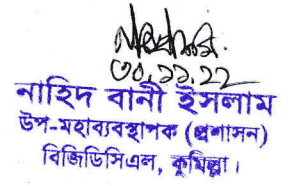 ৩০.১১.২২
নাহিদ বানী ইসলাম
উপ-মহাব্যবস্থাপক (প্রশাসন)
বিজিডিসিএল, কুমিল্লা।